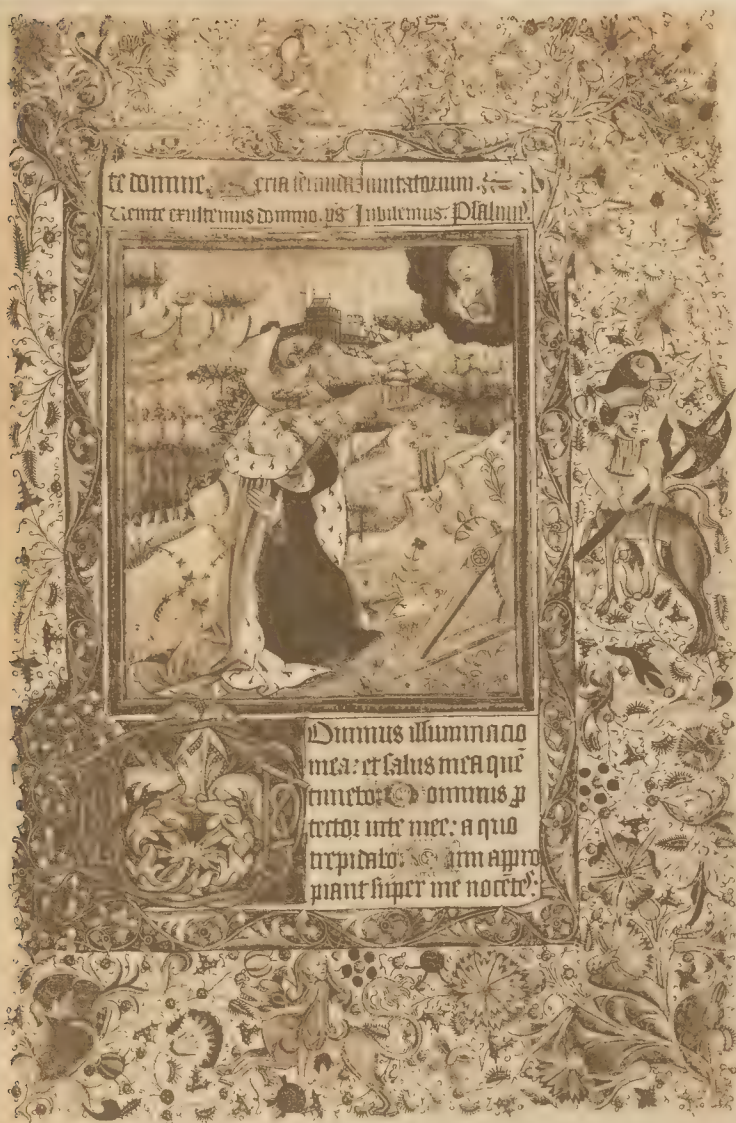 te domine. feria secunda Inuitatorium.
Venite exultemus domino. ps Jubilemus. Psalmꝰ.
Dominus illuminacio
mea: et salus mea quē
timebo: Dominus ꝓ
tector uite mee: a quo
trepidabo. Dum appro
piant super me nocētes: